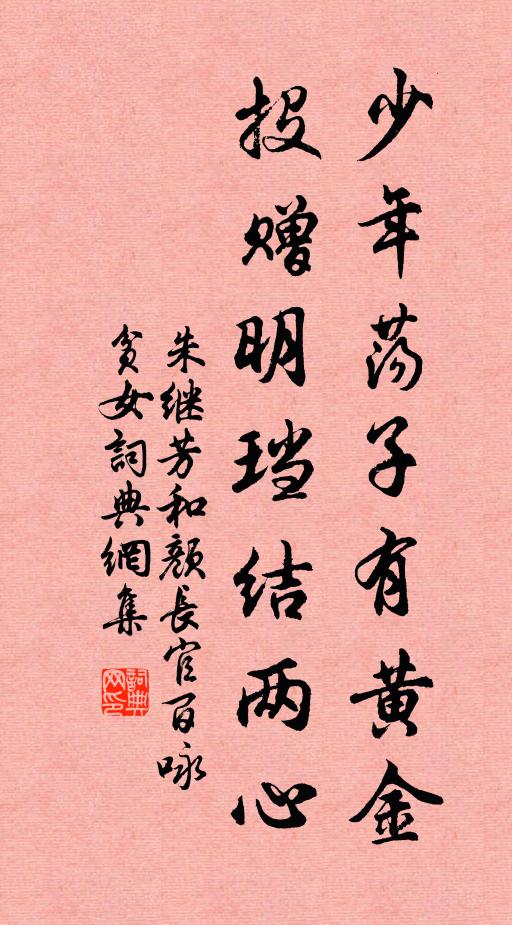 少年荡子有黄金
投赠明珰结两心
朱继芳和颜長官百咏
贫女詞典網集
詞典网印